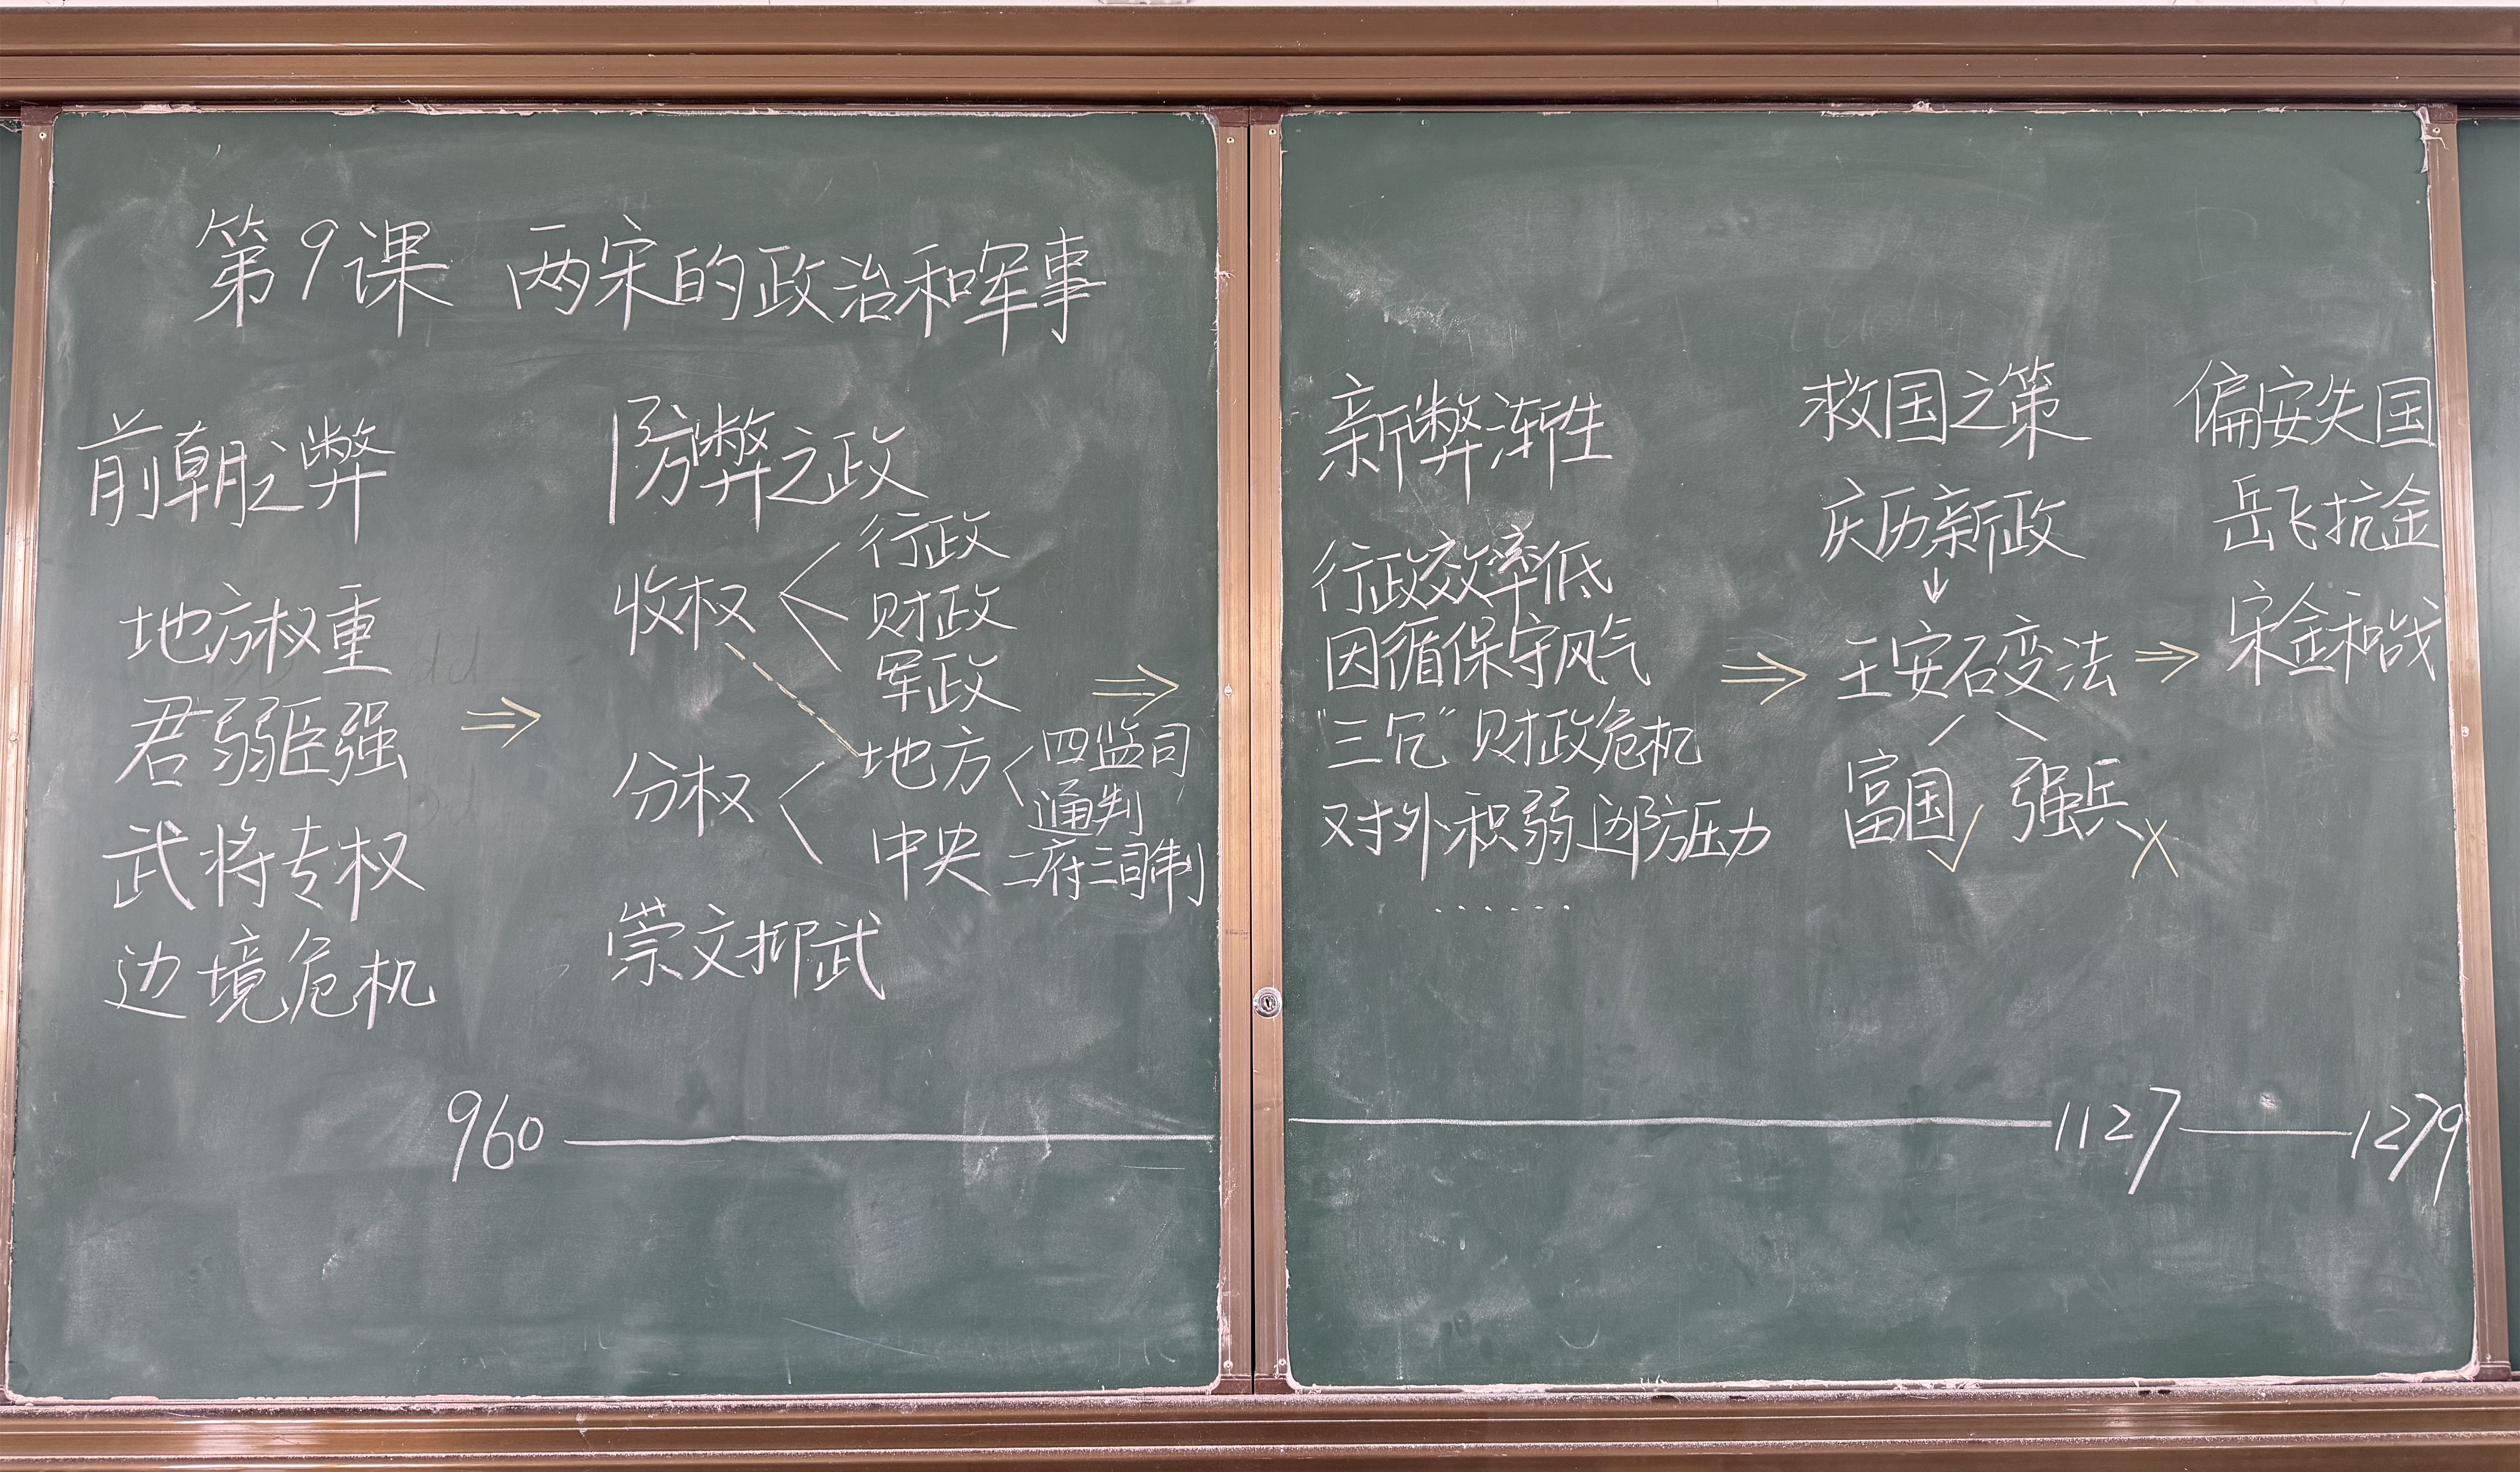 第9课 两宋的政治和军事
前朝之弊
地方权重
君弱臣强
武将专权
边境危机
⇒
防弊之政
收权
行政
财政
军政
分权
地方
四监司
通判
中央
二府三司制
崇文抑武
⇒
新弊渐生
行政效率低
因循保守风气
"三冗"财政危机
对外积弱 边防压力
......
⇒
救国之策
庆历新政
↓
王安石变法
富国✓ 强兵X
⇒
偏安失国
岳飞抗金
宋金和战
960 —— 1127 —— 1279